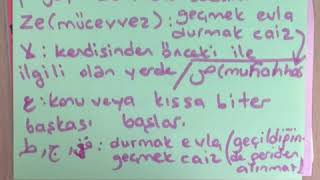 Ze(mücevvez): geçmek evla
durmak caiz
لا : kendisinden önceki ile
ilgili olan yerde / ص (murahhas
ع : konu veya kıssa biter
başkası başlar.
ط , ج , قف : durmak evla (geçildiğin-
geçmek caiz de geriden
alınmaz)